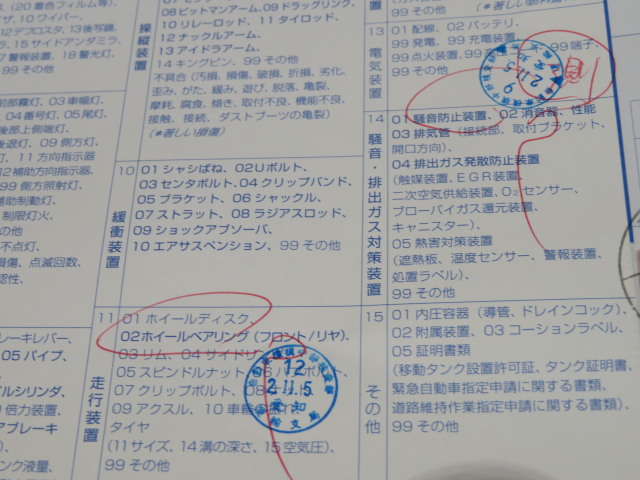 10 ワイパー、
12 デフロスタ、13 後写鏡、
15 サイドアンダミラ
17 警報装置、18 警光灯、
99 その他
前部霧灯、03 車幅灯、
04 番号灯、05 尾灯、
後部上側端灯、
09 側方灯、
11 方向指示器
12 補助方向指示器
99 側方照射灯、
補助制動灯、
制限灯火、
その他
不点灯、
損傷、点滅回数、
ブレーキレバー、
05 パイプ、
倍力装置、
アブレーキ
ンク液量、
99 その他
操縦装置
08 ピットマンアーム、09 ドラッグリンク、
10 リレーロッド、11 タイロッド、
12 ナックルアーム、
13 アイドラアーム、
14 キングピン、99 その他
不具合（汚損、損傷、破損、折損、劣化、
歪み、がた、緩み、遊び、脱落、亀裂、
摩耗、腐食、傾き、取付不良、機能不良、
接触、接続、ダストブーツの亀裂）
(※著しい損傷)
10
緩衝装置
01 シャシばね、02 Uボルト、
03 センタボルト、04 クリップバンド、
05 ブラケット、06 シャックル、
07 ストラット、08 ラジアスロッド、
09 ショックアブソーバ、
10 エアサスペンション、99 その他
11
走行装置
01 ホイールディスク、
02 ホイールベアリング（フロント/リヤ）、
03 リム、04 サイドリン
05 スピンドルナット、06 ハブボルト、
07 クリップボルト、08 ナット、
09 アクスル、10 車輪
タイヤ
(11 サイズ、14 溝の深さ、15 空気圧)、
99 その他
12
2.11.5
愛知
支局
99 その他
13
電気装置
01 配線、02 バッテリ、
99 発電、99 充電装置、
99 点火装置、99
99 端子、
99 その他
9
2.11.5
14
騒音・排出ガス対策装置
01 騒音防止装置、02 消音器、性能
03 排気管（接続部、取付ブラケット、
開口方向）、
04 排出ガス発散防止装置
（触媒装置、EGR装置、
二次空気供給装置、O₂センサー、
ブローバイガス還元装置、
キャニスター）、
05 熱害対策装置
（遮熱板、温度センサー、警報装置、
処置ラベル）、
99 その他
15
その他
01 内圧容器（導管、ドレインコック）、
02 附属装置、03 コーションラベル、
05 証明書類
（移動タンク設置許可証、タンク証明書、
緊急自動車指定申請に関する書類、
道路維持作業指定申請に関する書類）、
99 その他